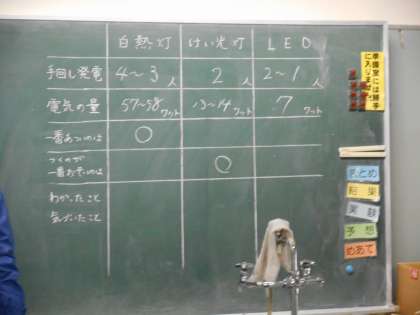 白熱灯 けい光灯 LED
手回し発電 4〜3人 2人 2〜1人
電気の量 57〜58ワット 13〜14ワット 7ワット
一番あついのは ○
つくのが ○
一番おそいのは
わかったこと
気づいたこと
準備室には勝手
に入りません
まとめ
結果
実験
予想
めあて